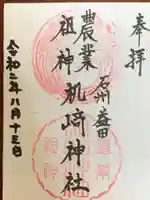 奉拝
石州益田
農業
祖神机崎神社
令和二年八月十三日